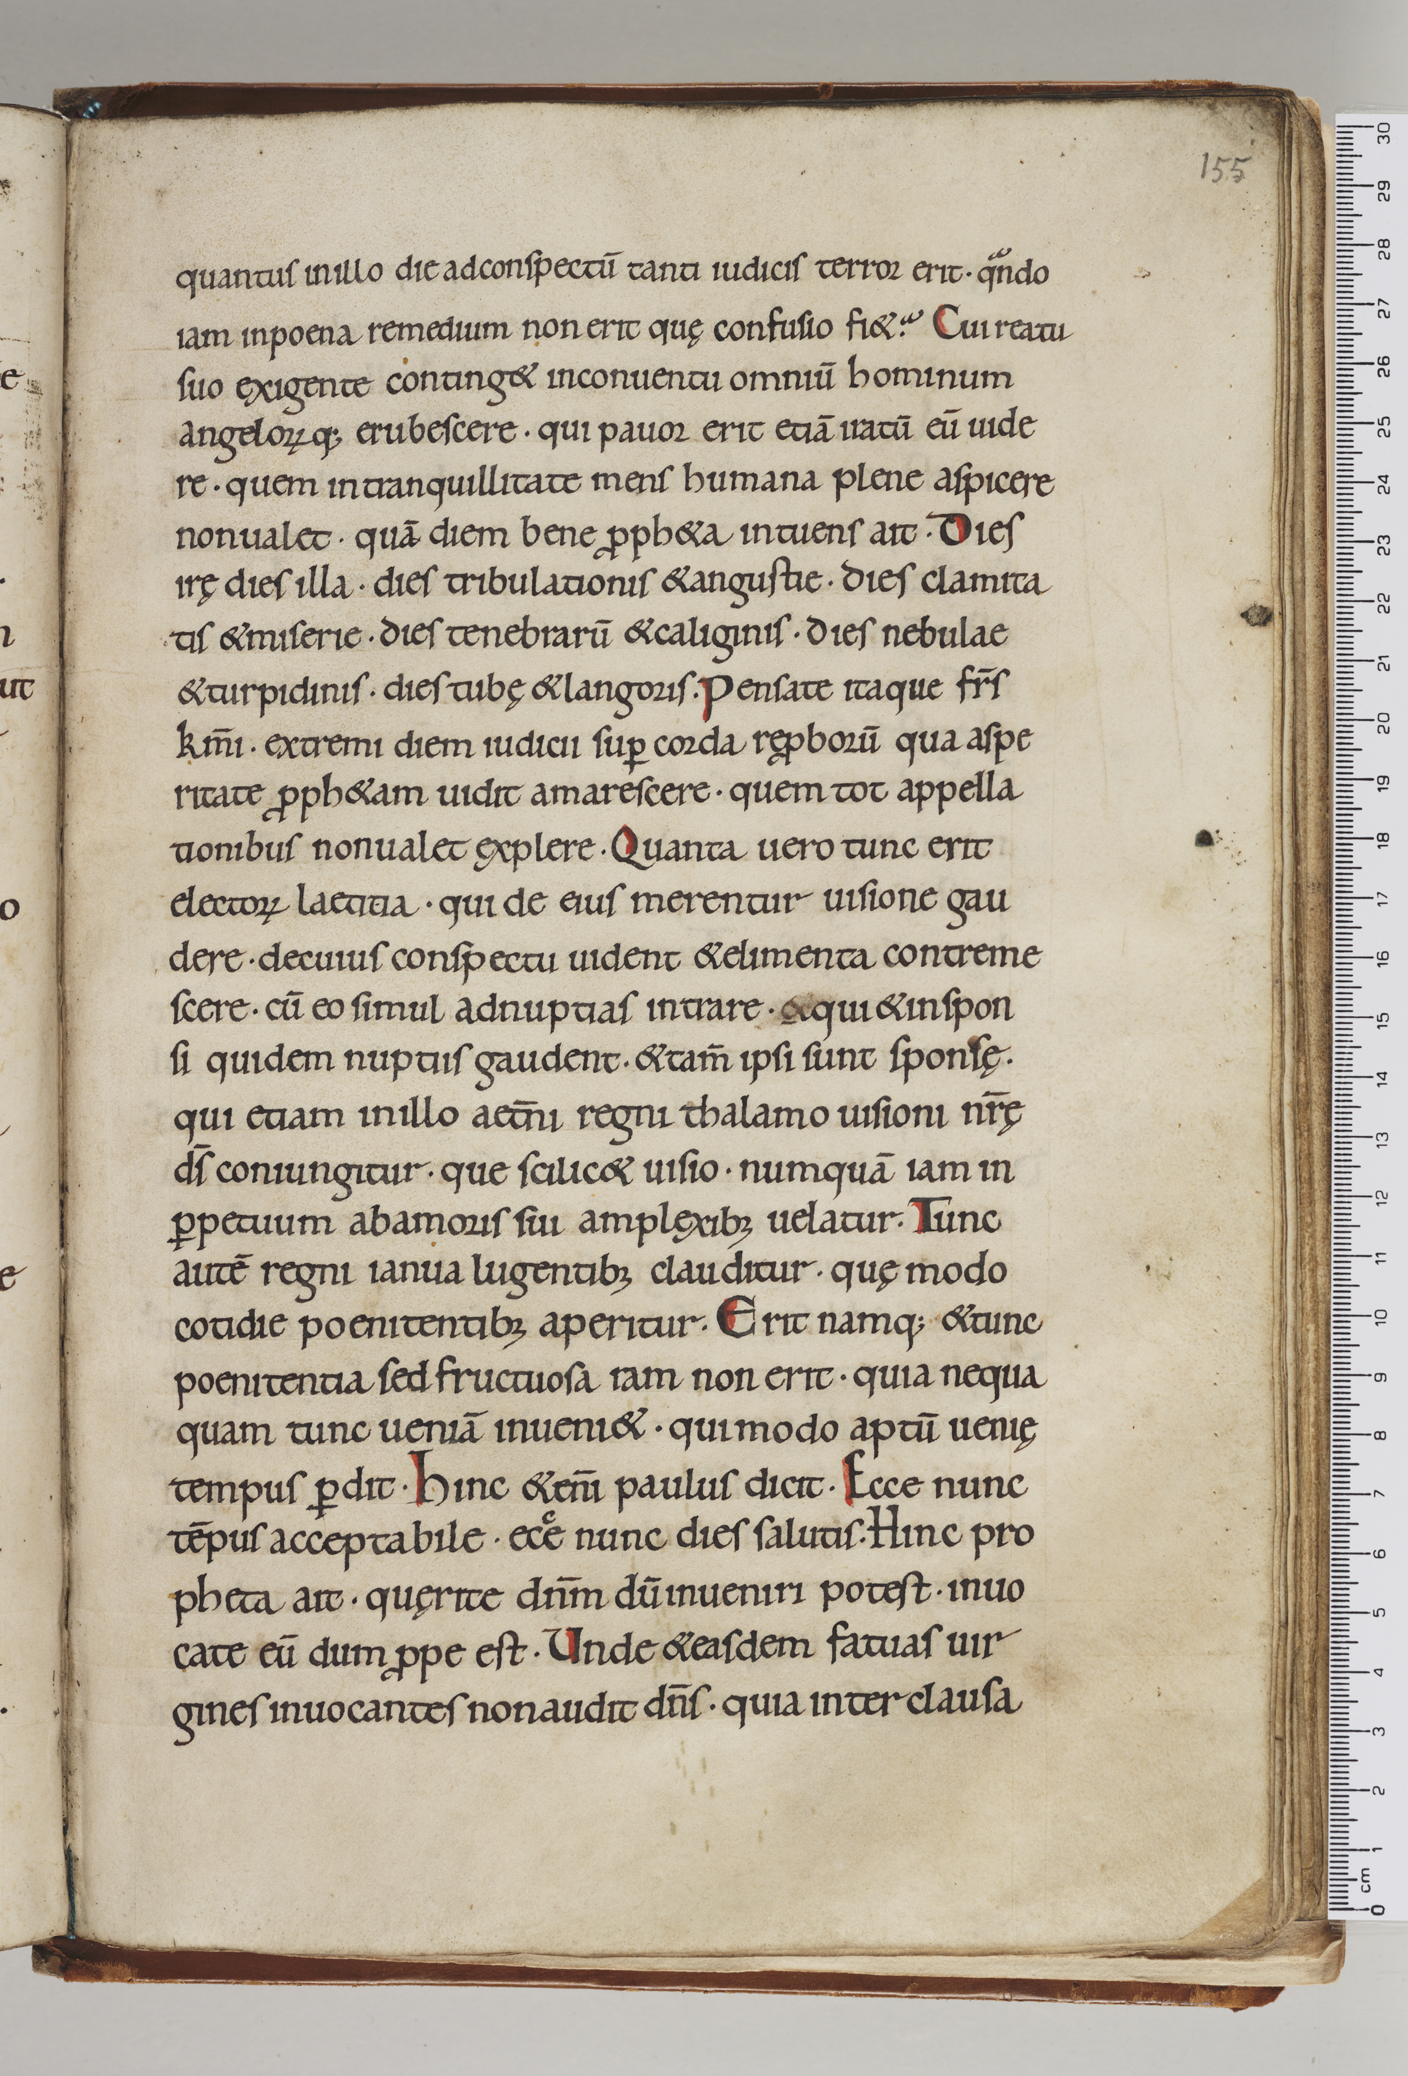 155
quantus inillo die adconspectū tanti iudicis terror erit · qͣndo
iam inpoena remedium non erit quę confusio fi&? Cui reatu
suo exigente conting& inconuentu omniū hominum
angeloꝝq; erubescere · qui pauor erit etiā iratū eū uide
re · quem intranquillitate mens humana plene aspicere
nonualet · quā diem bene ꝓph&a intuens ait · Dies
irę dies illa · dies tribulationis &angustie · dies clamita
tis &miserie · dies tenebrarū &caliginis · dies nebulae
&turpidinis · dies tubę &langoris · Pensate itaque fr̄s
km̄i · extremi diem iudicii suꝑ corda reꝓborū qua aspe
ritate ꝓph&am uidit amarescere · quem tot appella
tionibus nonualet explere · Quanta uero tunc erit
electoꝝ laetitia · qui de eius merentur uisione gau
dere · decuius conspectu uident &elimenta contreme
scere · cū eo simul adnuptias intrare · &qui &inspon
si quidem nuptiis gaudent · &tam̄ ipsi sunt sponsę ·
qui etiam inillo aet̄ni regni thalamo uisioni nr̄ę
ds̄ coniungitur · que scilic& uisio · numquā iam in
ꝑpetuum abamoris sui amplexibꝫ uelatur · Tunc
autē regni ianua lugentibꝫ clauditur · quę modo
cotidie poenitentibꝫ aperitur · Erit namq; &tunc
poenitentia sed fructuosa iam non erit · quia nequa
quam tunc ueniā inueni& · qui modo aptū uenię
tempus ꝑdit · Hinc &eni̅ paulus dicit · Ecce nunc
tēpus acceptabile · ecͨe nunc dies salutis · Hinc pro
pheta ait · quęrite dn̄m dū inueniri potest · inuo
cate eū dum ꝓpe est · Unde &easdem fatuas uir
gines inuocantes nonaudit dn̄s · quia inter clausa